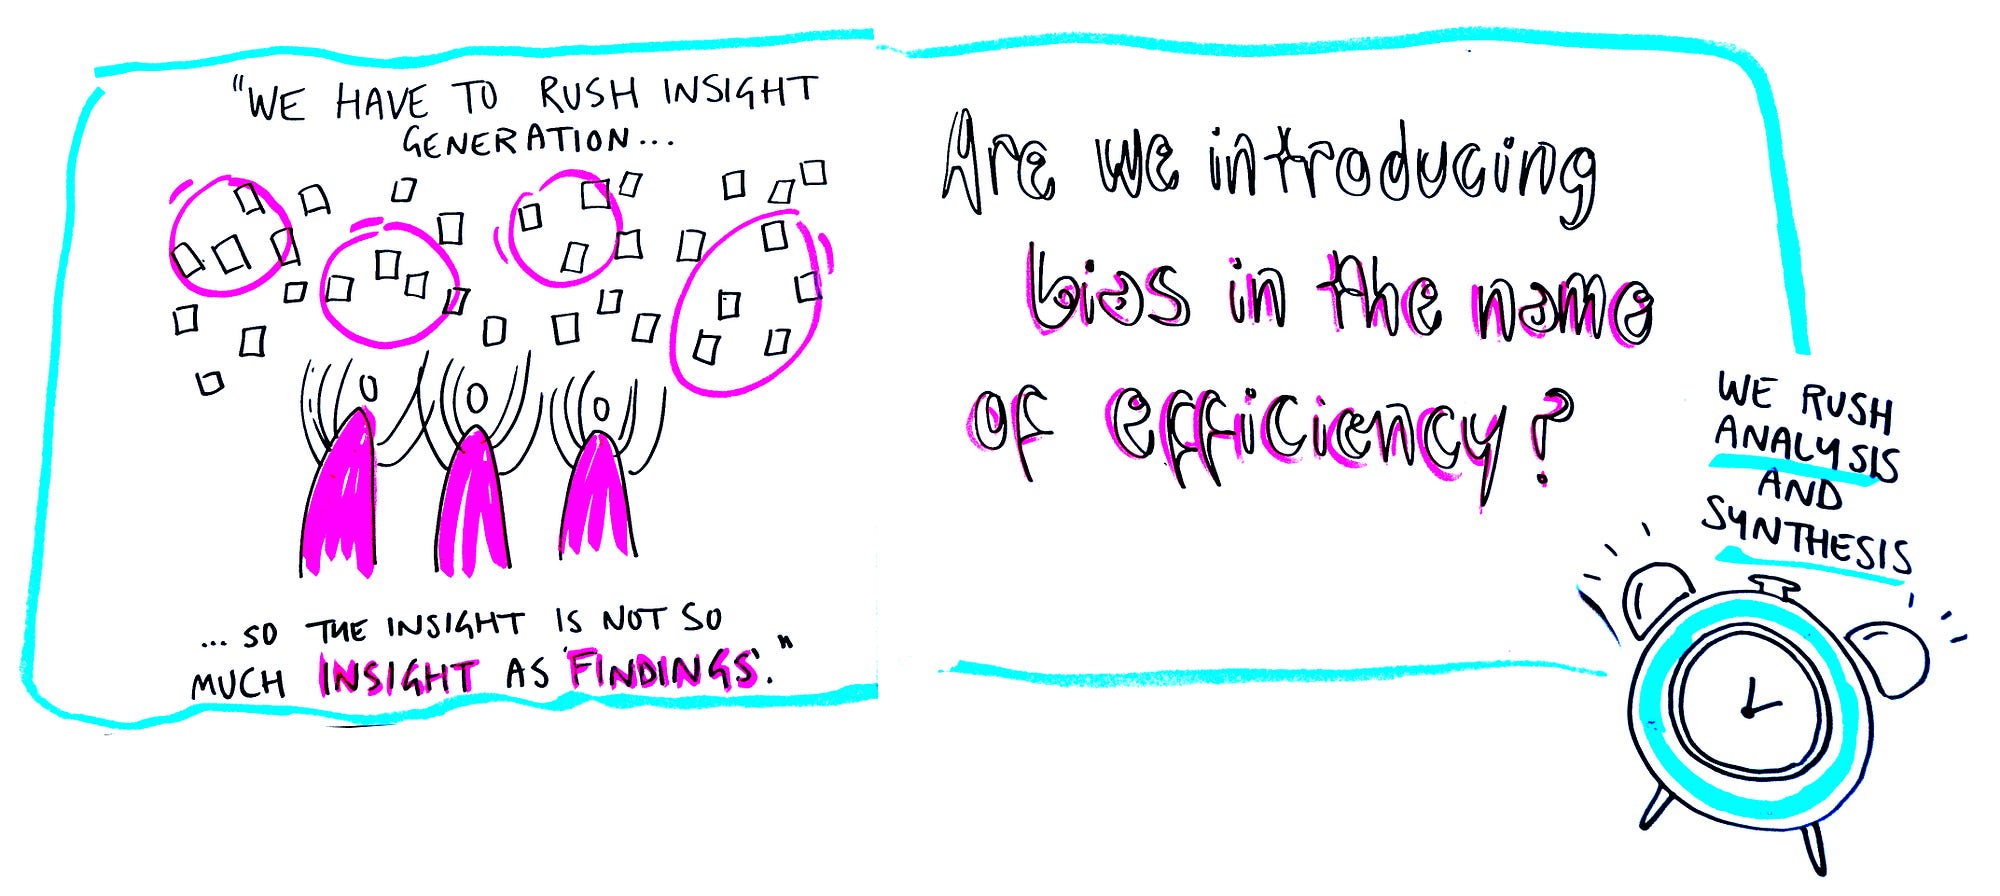 "WE HAVE TO RUSH INSIGHT
GENERATION...
...SO THE INSIGHT IS NOT SO
MUCH INSIGHT AS 'FINDINGS'."
Are we introducing
bias in the name
of efficiency?
WE RUSH
ANALYSIS
AND
SYNTHESIS